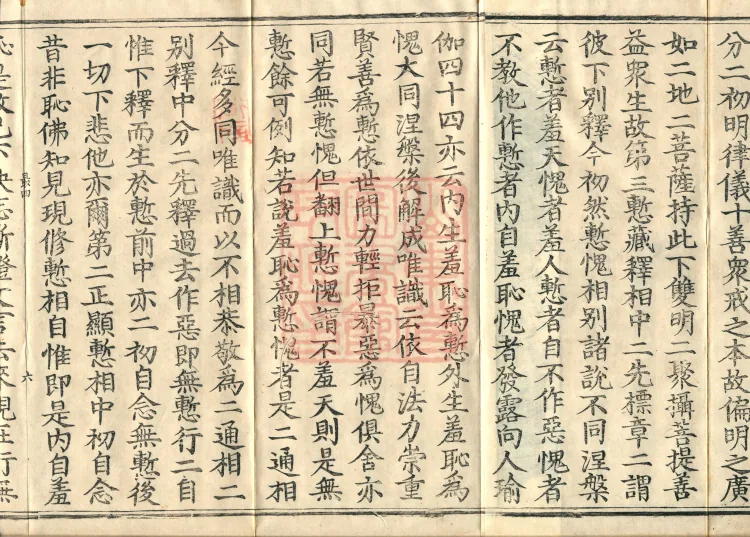 分二初明律儀十善衆戒之本故偏明之廣
如二地二菩薩持此下雙明二聚攝菩提善
益衆生故第三慙藏釋相中二先標章二謂
彼下別釋今初然慙愧相別諸說不同涅槃
云慙者羞天愧者羞人慙者自不作惡愧者
不教他作慙者內自羞恥愧者發露向人瑜
伽四十四亦云內生羞恥爲慙外生羞恥爲
愧大同涅槃後解成唯識云依自法力崇重
賢善爲慙依世間力輕拒暴惡爲愧俱舍亦
同若無慙愧但翻上慙愧謂不羞天則是無
慙餘可例知若說羞恥爲慙愧者是二通相
今經多同唯識而以不相恭敬爲二通相二
別釋中分二先釋過去作惡即無慙行二自
惟下釋而生於慙前中亦二初自念無慙後
一切下悲他亦爾第二正顯慙相中初自念
昔非恥佛知見現修慙相自惟即是內自羞
六